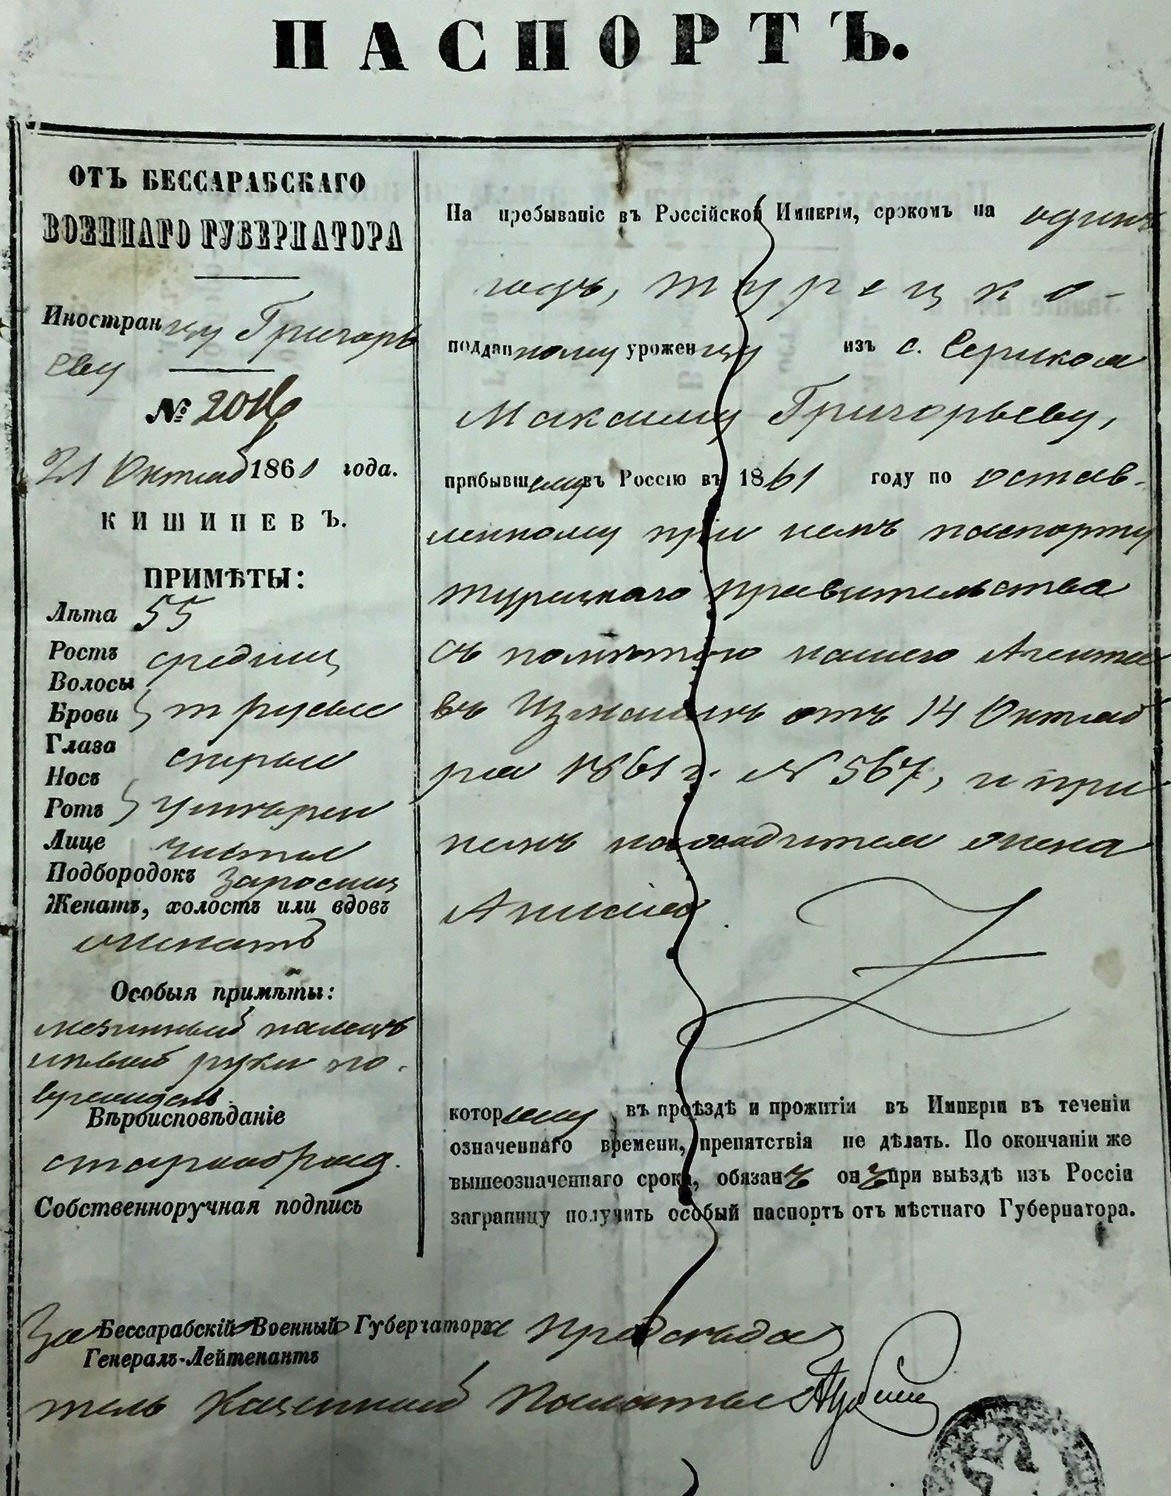 ПАСПОРТЪ.
ОТЪ БЕССАРАБСКАГО
ВОЕННАГО ГУБЕРНАТОРА
Иностранцу Григорь
еву
№ 2016
21 Октяб 1861 года.
КИШИНЕВЪ.
ПРИМѢТЫ:
Лѣта 55
Ростъ средній
Волосы
Брови } т русые
Глаза сѣрые
Носъ
Ротъ } умѣрен
Лице чистое
Подбородокъ заросшій
Женатъ, холостъ или вдовъ
женатъ
Особыя примѣты:
мезинный палецъ
лѣвой руки по-
врежденъ.
Вѣроисповѣданіе
старообряд.
Собственноручная подпись
На пребываніе въ Россійской Имперіи, срокомъ на одинъ
годъ, турецко-
подданному уроженцу изъ с. Сериком
Максиму Григорьеву,
прибывшему въ Россію въ 1861 году по остав-
ленному при немъ паспорту
турецкаго правительства
съ помѣтою нашего Агента
въ Измаилѣ отъ 14 Октяб
ря 1861 г. № 567, и при
немъ находится жена
Анисія
которому въ проѣздѣ и прожитіи въ Имперіи въ теченіи
означеннаго времени, препятствія не дѣлать. По окончаніи же
вышеозначеннаго срока, обязанъ онъ при выѣздѣ изъ Россіи
заграницу получить особый паспортъ отъ мѣстнаго Губернатора.
За Бессарабскій Военный Губернатора Предсѣда
Генералъ-Лейтенантъ
тель Казенной Палаты